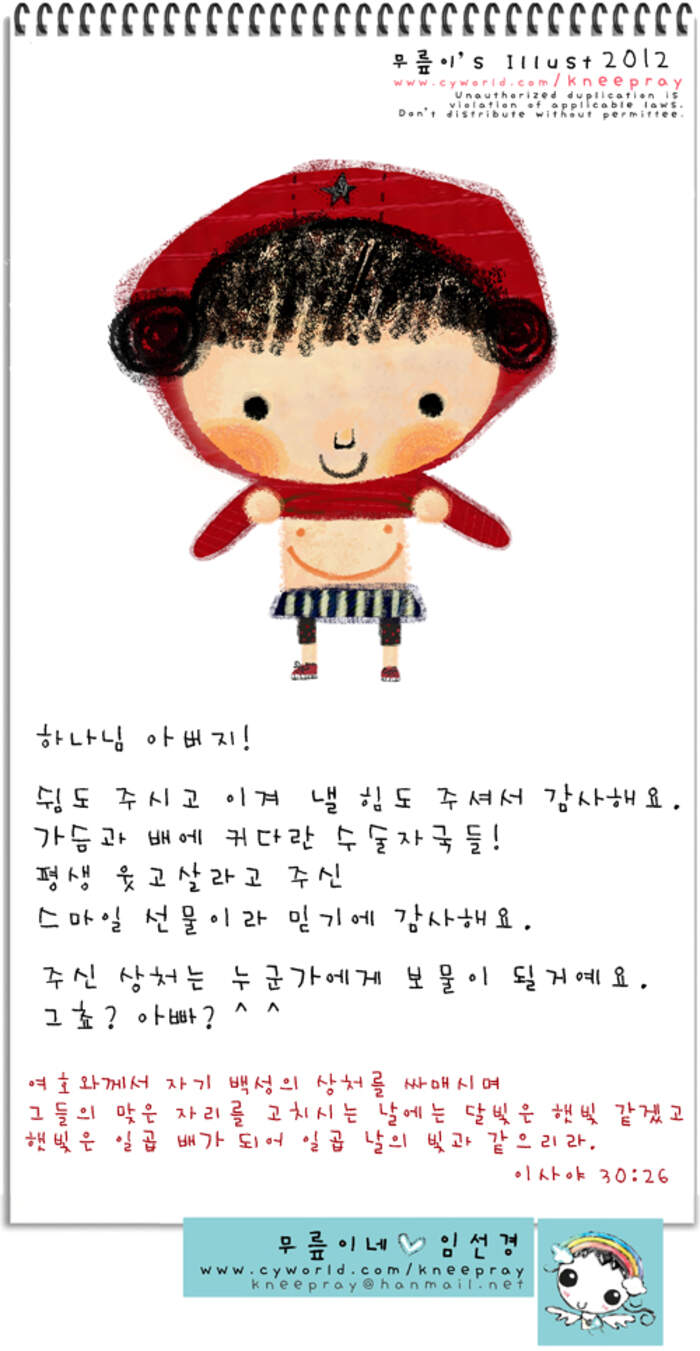 무릎이's Illust 2012
www.cyworld.com/kneepray
Unauthorized duplication is
violation of applicable laws.
Don't distribute without permittee.
하나님 아버지!
쉼도 주시고 이겨 낼 힘도 주셔서 감사해요.
가슴과 배에 커다란 수술자국들!
평생 웃고살라고 주신
스마일 선물이라 믿기에 감사해요.
주신 상처는 누군가에게 보물이 될거예요.
그쵸? 아빠? ^ ^
여호와께서 자기 백성의 상처를 싸매시며
그들의 맞은 자리를 고치시는 날에는 달빛은 햇빛 같겠고
햇빛은 일곱 배가 되어 일곱 날의 빛과 같으리라.
이사야 30:26
무릎이네 임선경
www.cyworld.com/kneepray
kneepray@hanmail.net